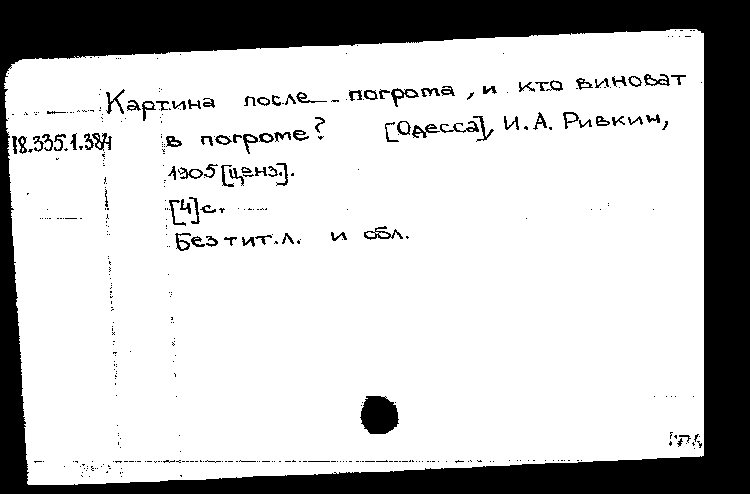 Картина после погрома, и кто виноват
18.335.1.384
в погроме? [Одесса], И.А. Ривкин,
1905 [ценз].
[4] с.
Без тит. л. и обл.